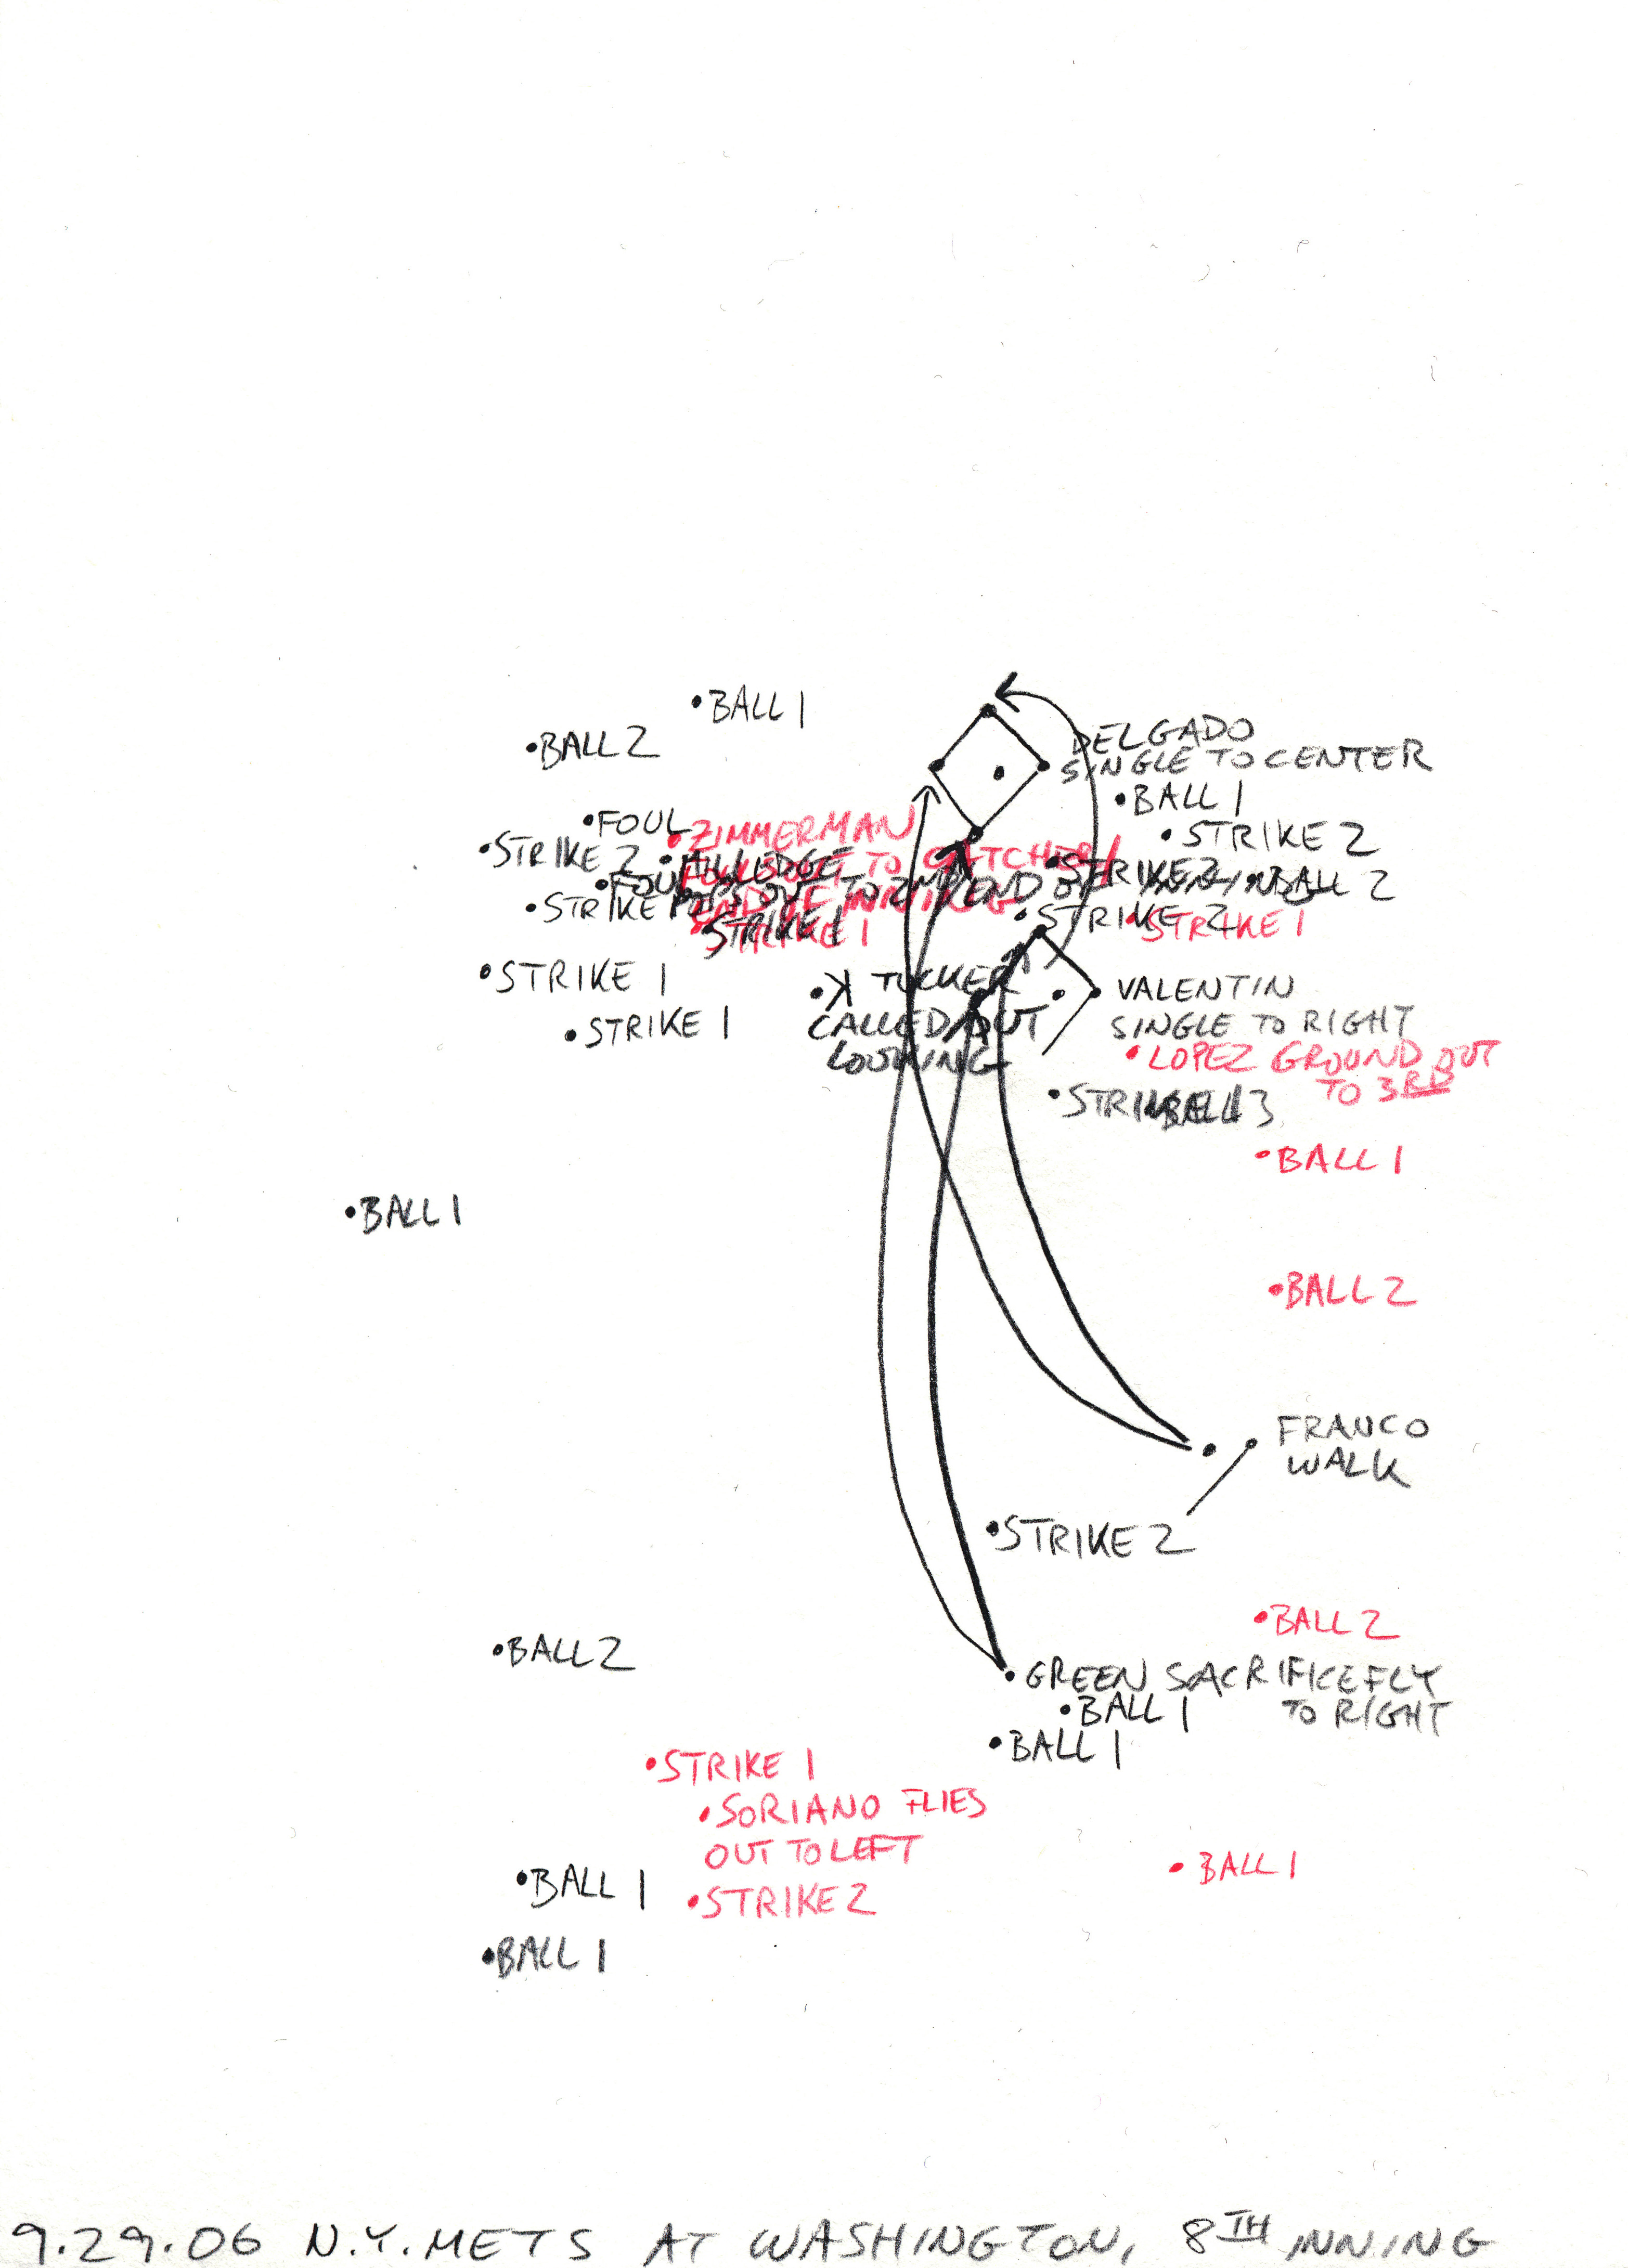 BALL 1
BALL 2
DELGADO
SINGLE TO CENTER
BALL 1
FOUL
ZIMMERMAN
STRIKE 2
STRIKE 2
MILLEDGE
TO CATCHER
STRIKE 2
BALL 2
FOUL
STRIKE
END OF INNING
STRIKE 2
STRIKE 1
STRIKE 1
STRIKE 1
K TUCKER
CALLED OUT
LOOKING
VALENTIN
SINGLE TO RIGHT
STRIKE 1
LOPEZ GROUND OUT
TO 3RD
BALL 3
BALL 1
BALL 1
BALL 2
FRANCO
WALK
STRIKE 2
BALL 2
BALL 2
GREEN SACRIFICE FLY
TO RIGHT
BALL 1
BALL 1
STRIKE 1
SORIANO FLIES
OUT TO LEFT
BALL 1
BALL 1
STRIKE 2
BALL 1
9.29.06 N.Y. METS AT WASHINGTON, 8TH INNING